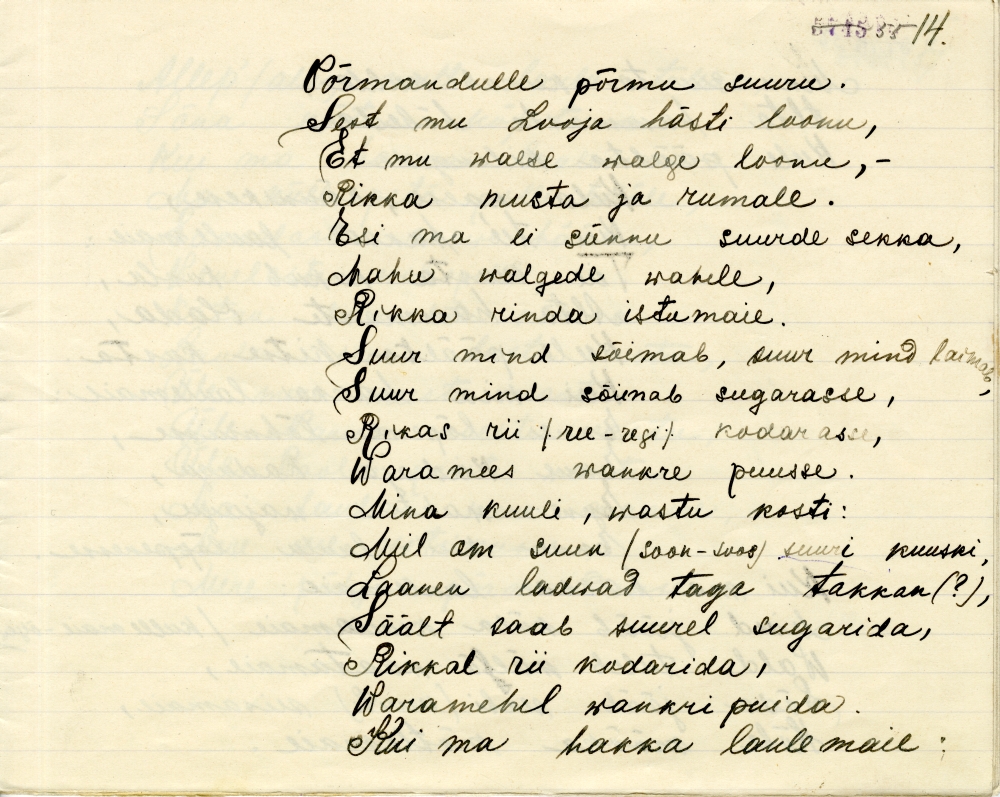 14.
Põrmandulle põrmu suuru.
Sest mu Looja hästi loonu,
Et mu walse walge loonu,-
Rikka musta ja rumale.
Esi ma ei sünnu suurde sekka,
Mahu walgede wahele,
Rikka rinda istumaie.
Suur mind sõimab, suur mind laimab,
Suur mind sõimab sugarasse,
Rikas rii /ree-regi/ kodarasse,
Waramees wankre puusse.
Mina kuuli, wastu kosti:
Meil om suun (soon-soos) suuri kuuski,
Laanen ladwad taga takkan(?),
Säält saab suurel sugarida,
Rikkal rii kodarida,
Waramehel wankri puida.
Kui ma hakka laulemaie: